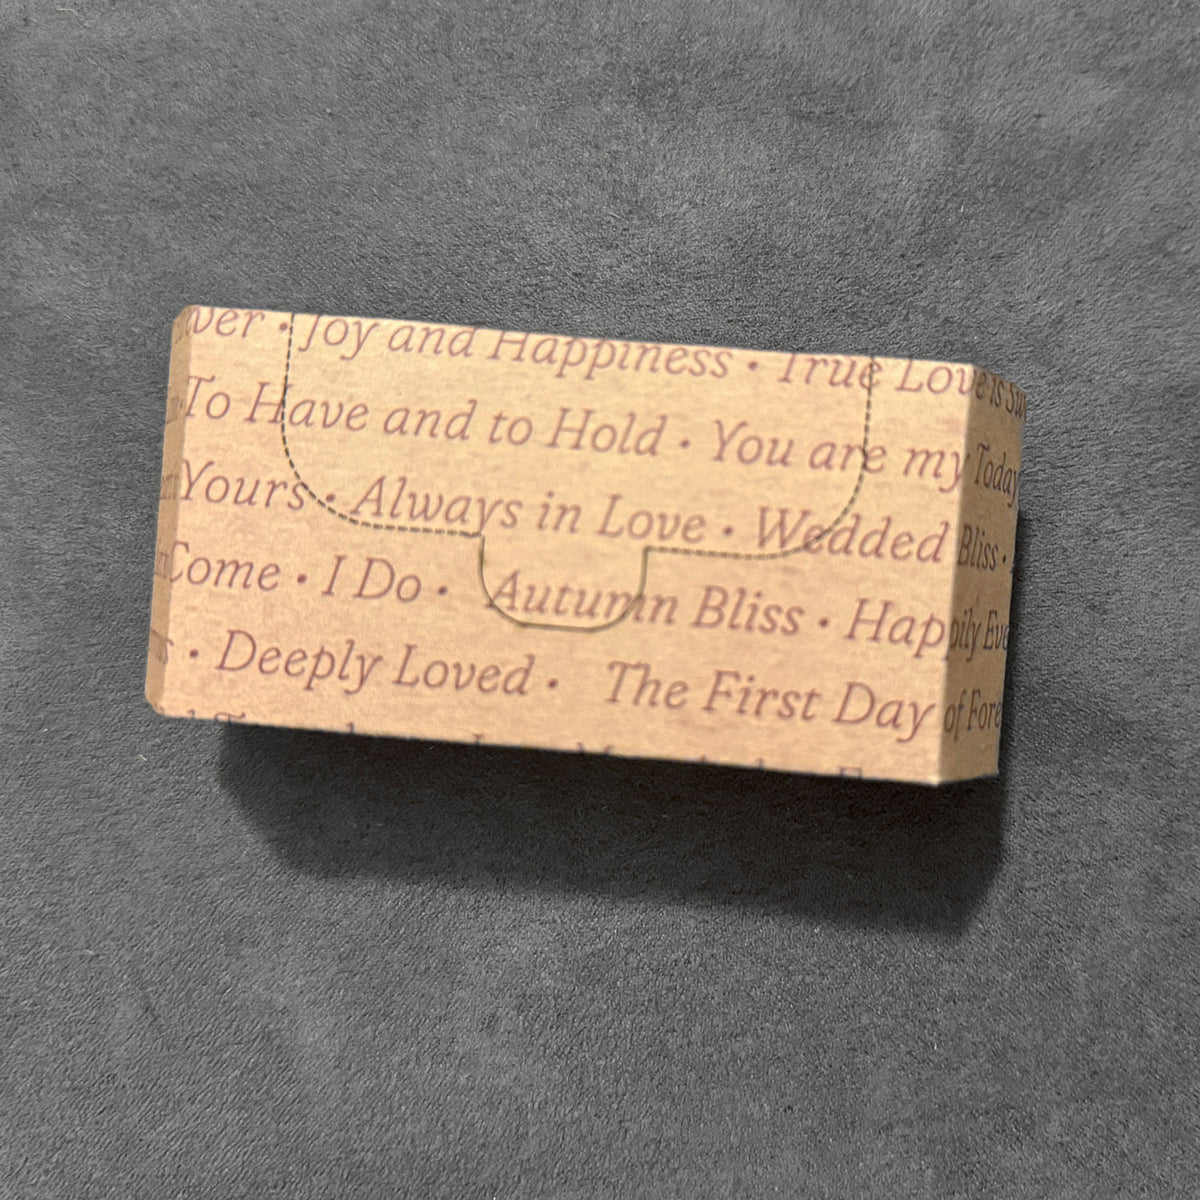 ver • Joy and Happiness • True Love is Sw
To Have and to Hold • You are my Today
Yours • Always in Love • Wedded Bliss •
Come • I Do • Autumn Bliss • Happily Eve
s • Deeply Loved • The First Day of Fore